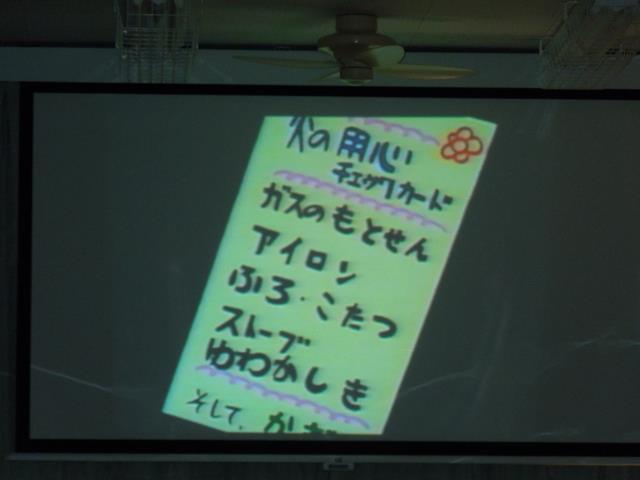 火の用心
チェックカード
ガスのもとせん
アイロン
ふろ・こたつ
ストーブ
ゆわかしき
そして、